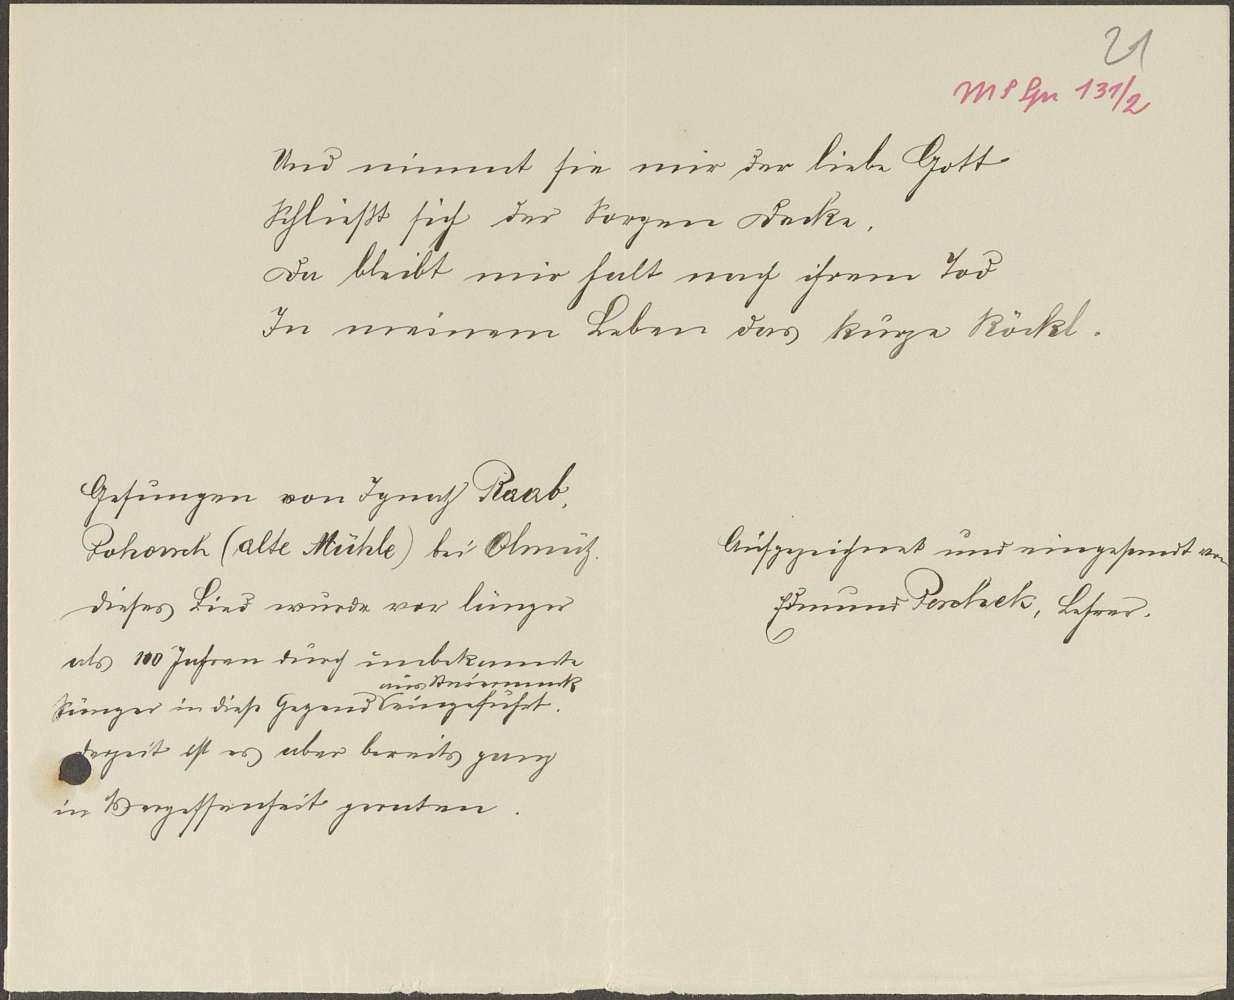 21
MS Gu 131/2
Und nimmt sie mir der liebe Gott
Schließt sich der Sorgen Decke,
Da bleibt mir halt nach ihrem Tod
In meinem Leben das kurze Röckl.
Gesungen von Ignatz Raab,
(alte Mühle) bei Olmütz.
Dieses Lied wurde vor länger
als 100 Jahren durch unbekannte
aus Steiermark
Sänger in diese Gegend eingeführt.
Derzeit ist es aber bereits ganz
in Vergessenheit geraten.
Aufgezeichnet und eingesandt von
Edmund Lehrer.